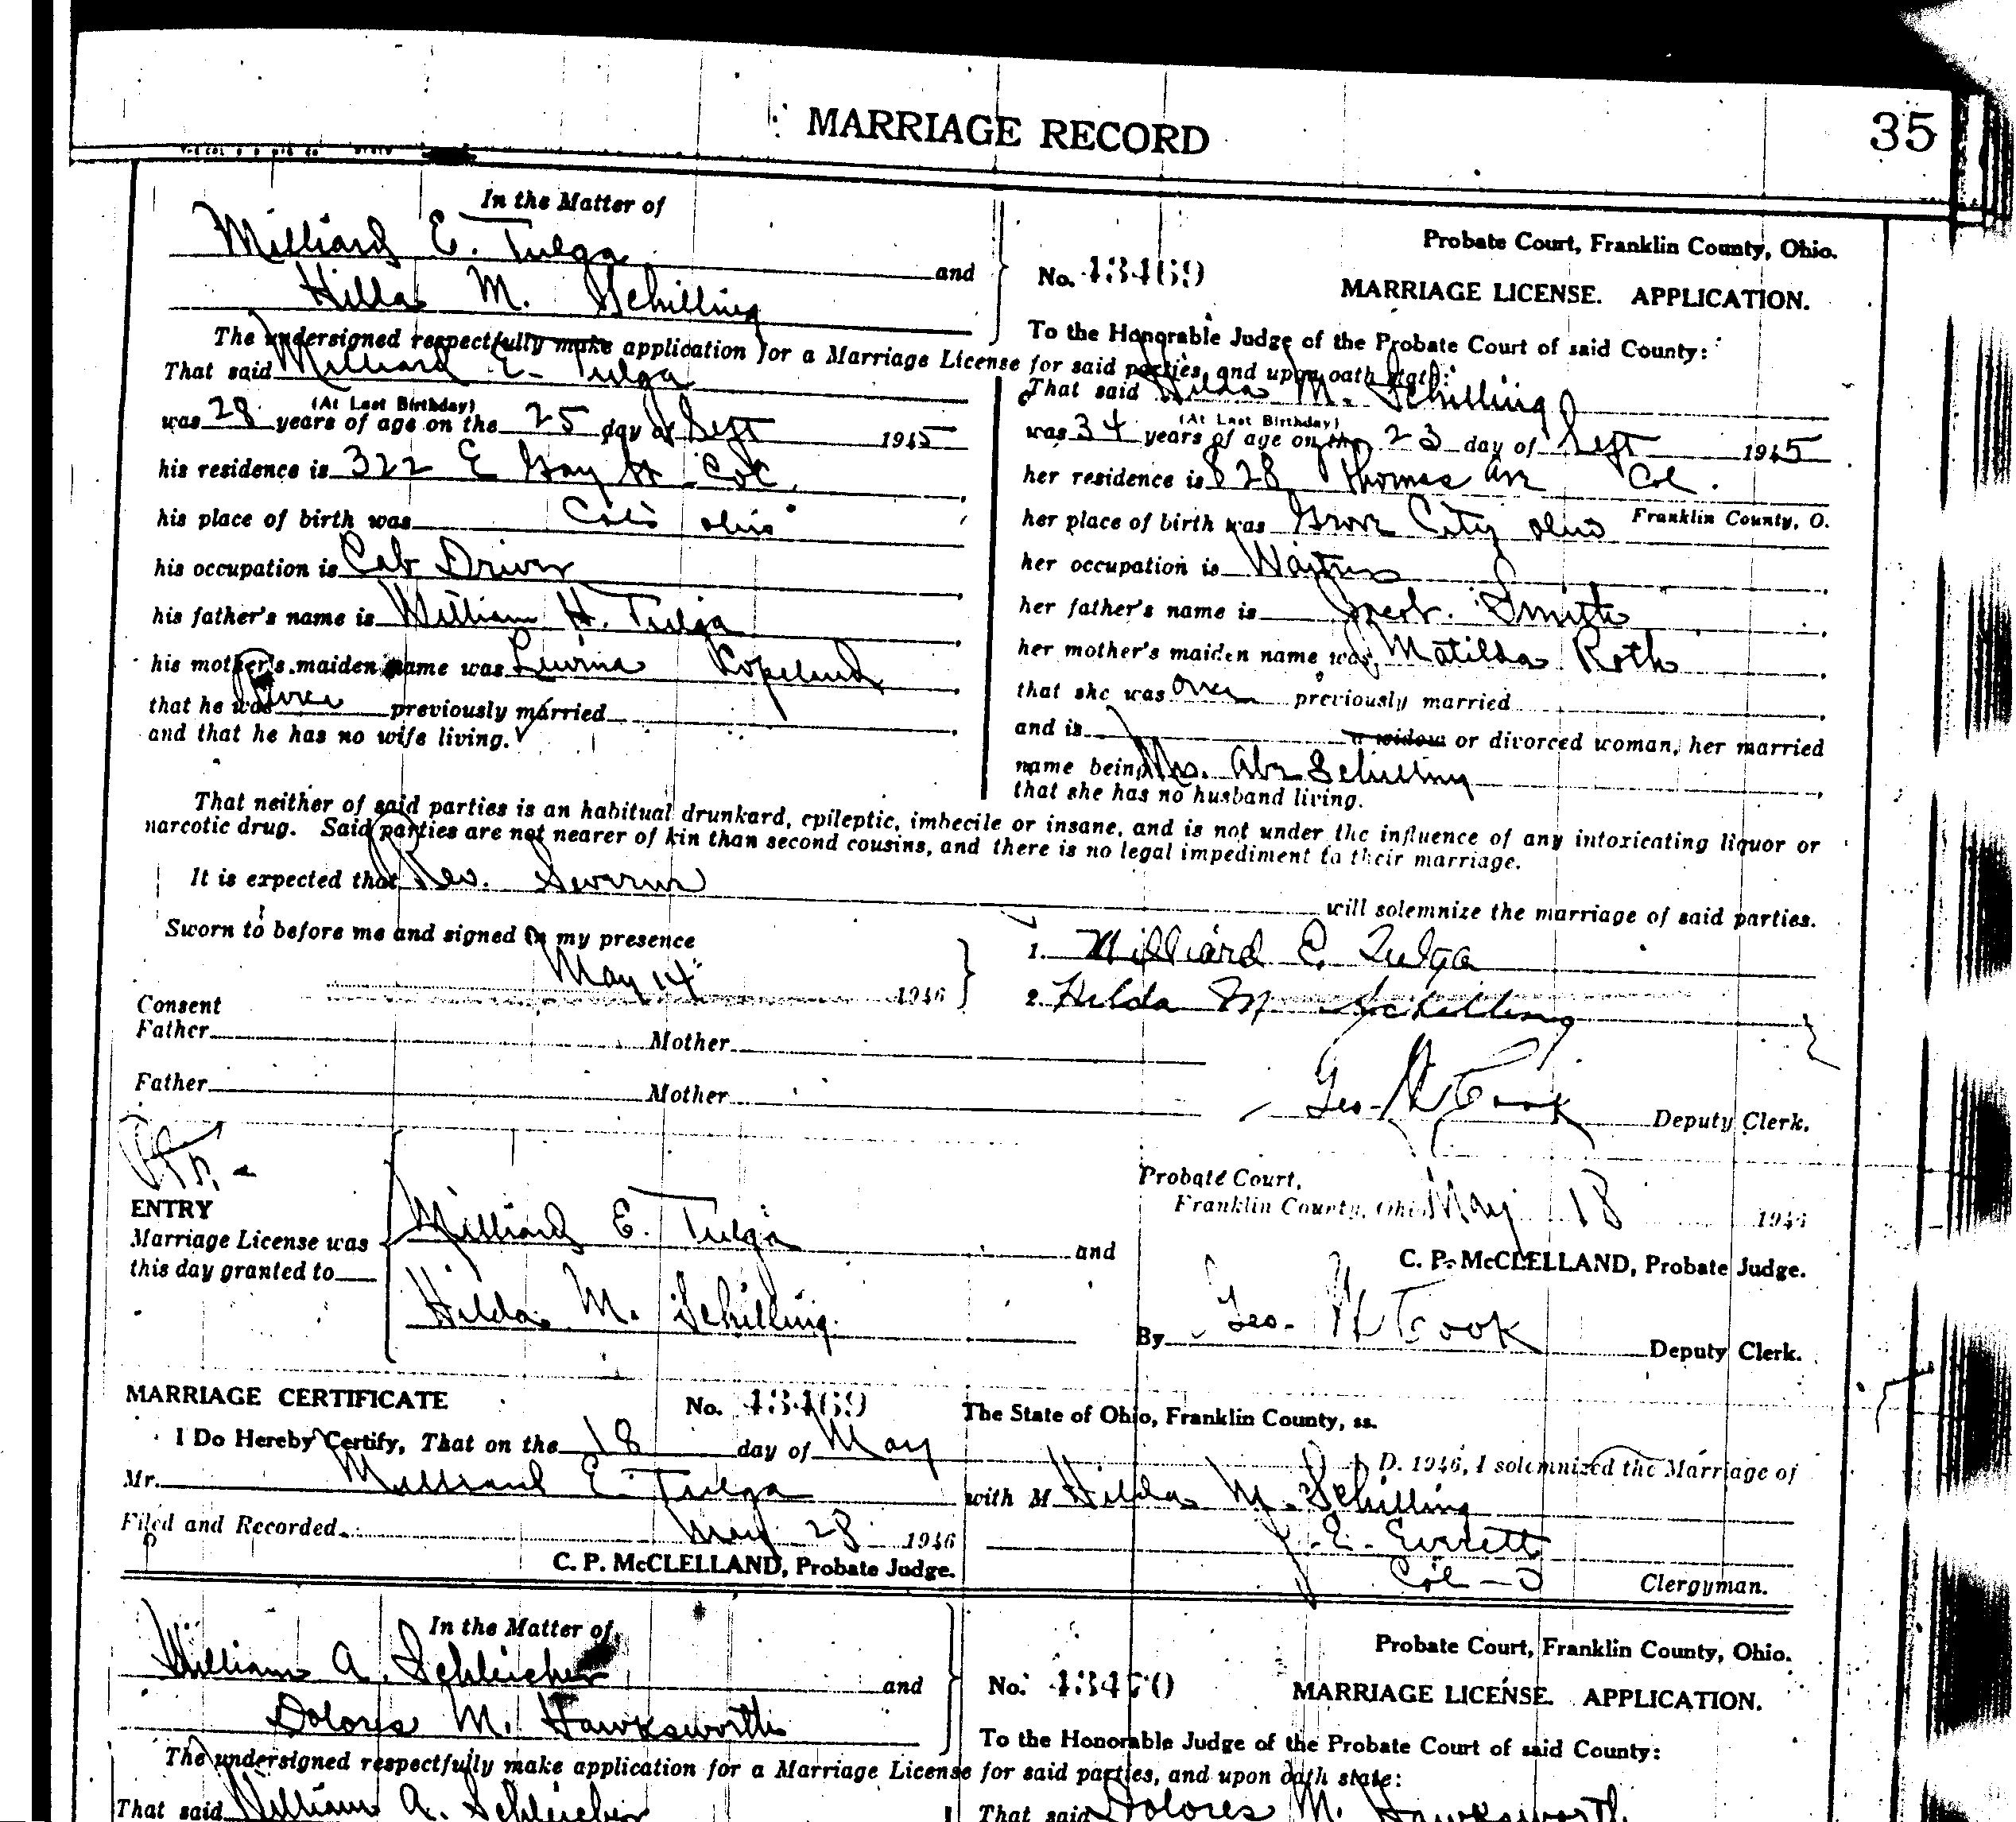 MARRIAGE RECORD
35
In the Matter of
Milliard E. Tulga
and
Hilda M. Schilling
Probate Court, Franklin County, Ohio.
No. 43469
MARRIAGE LICENSE. APPLICATION.
To the Honorable Judge of the Probate Court of said County:
The undersigned respectfully make application for a Marriage License for said parties, and upon oath state:
That said Milliard E. Tulga
(At Last Birthday)
was 28 years of age on the 25 day of Sept 1945
his residence is 322 E Gay St Col.
his place of birth was Cols Ohio
his occupation is Cab Driver
his father's name is William H. Tulga
his mother's maiden name was Kopeland
that he was previously married
and that he has no wife living.
That said Hilda M. Schilling
(At Last Birthday)
was 34 years of age on the 23 day of Sept 1945
her residence is 828 Thomas Ave Col.
Franklin County, O.
her place of birth was Grove City Ohio
her occupation is Waitress
her father's name is Jacob Smith
her mother's maiden name was Matilda Roth
that she was once previously married
and is a widow or divorced woman, her married
name being Mrs. Abe Schilling
that she has no husband living.
That neither of said parties is an habitual drunkard, epileptic, imbecile or insane, and is not under the influence of any intoxicating liquor or
narcotic drug. Said parties are not nearer of kin than second cousins, and there is no legal impediment to their marriage.
It is expected that Rev.
will solemnize the marriage of said parties.
Sworn to before me and signed in my presence
May 14 1946
1. Milliard E. Tulga
2. Hilda M Schilling
Consent
Father Mother
Father Mother
Geo. W Cook Deputy Clerk.
ENTRY
Marriage License was
this day granted to
Milliard E. Tulga
and
Hilda M. Schilling
Probate Court,
Franklin County, Ohio May 18 1946
C. P. McCLELLAND, Probate Judge.
By Geo. W Cook Deputy Clerk.
MARRIAGE CERTIFICATE No. 43469
The State of Ohio, Franklin County, ss.
I Do Hereby Certify, That on the 18 day of May D. 1946, I solemnized the Marriage of
Mr. Milliard E. Tulga with M Hilda M. Schilling
Filed and Recorded May 28 1946
J. E. Everett
C. P. McCLELLAND, Probate Judge.
Col - O Clergyman.
In the Matter of
William A. Schleicher
and
Dolores M. Hawksworth
Probate Court, Franklin County, Ohio.
No. 43470
MARRIAGE LICENSE. APPLICATION.
To the Honorable Judge of the Probate Court of said County:
The undersigned respectfully make application for a Marriage License for said parties, and upon oath state:
That said William A. Schleicher
That said Dolores M. Hawksworth